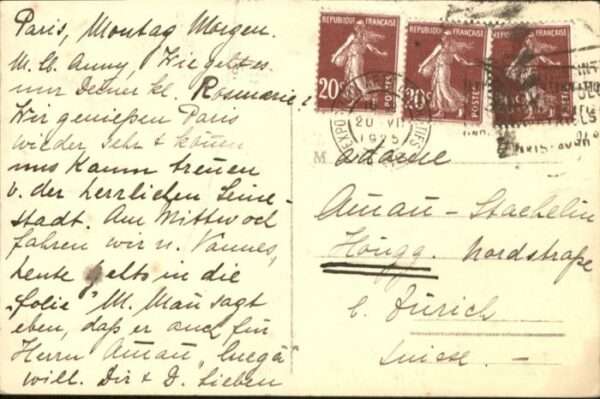 Paris, Montag Morgen.
M. lb. Anny, Wie geht es
nur Deiner kl. Rosmarie?
Wir genießen Paris
wieder sehr & können
uns kaum trennen
v. der herrlichen Seine-
stadt. Am Mittwoch
fahren wir n. Vannes,
heute gehts in die
"folie". M. Mañ sagt
eben, daß er auch für
Herrn Aman,
will. Dir & D. Lieben
REPUBLIQUE FRANÇAISE
20c POSTES
REPUBLIQUE FRANÇAISE
20c POSTES
REPUBLIQUE FRANÇAISE
POSTES
20 VII
1925
Madame
Aman-Staehelin
Höngg. Nordstraße
b. Zürich
Suisse. -